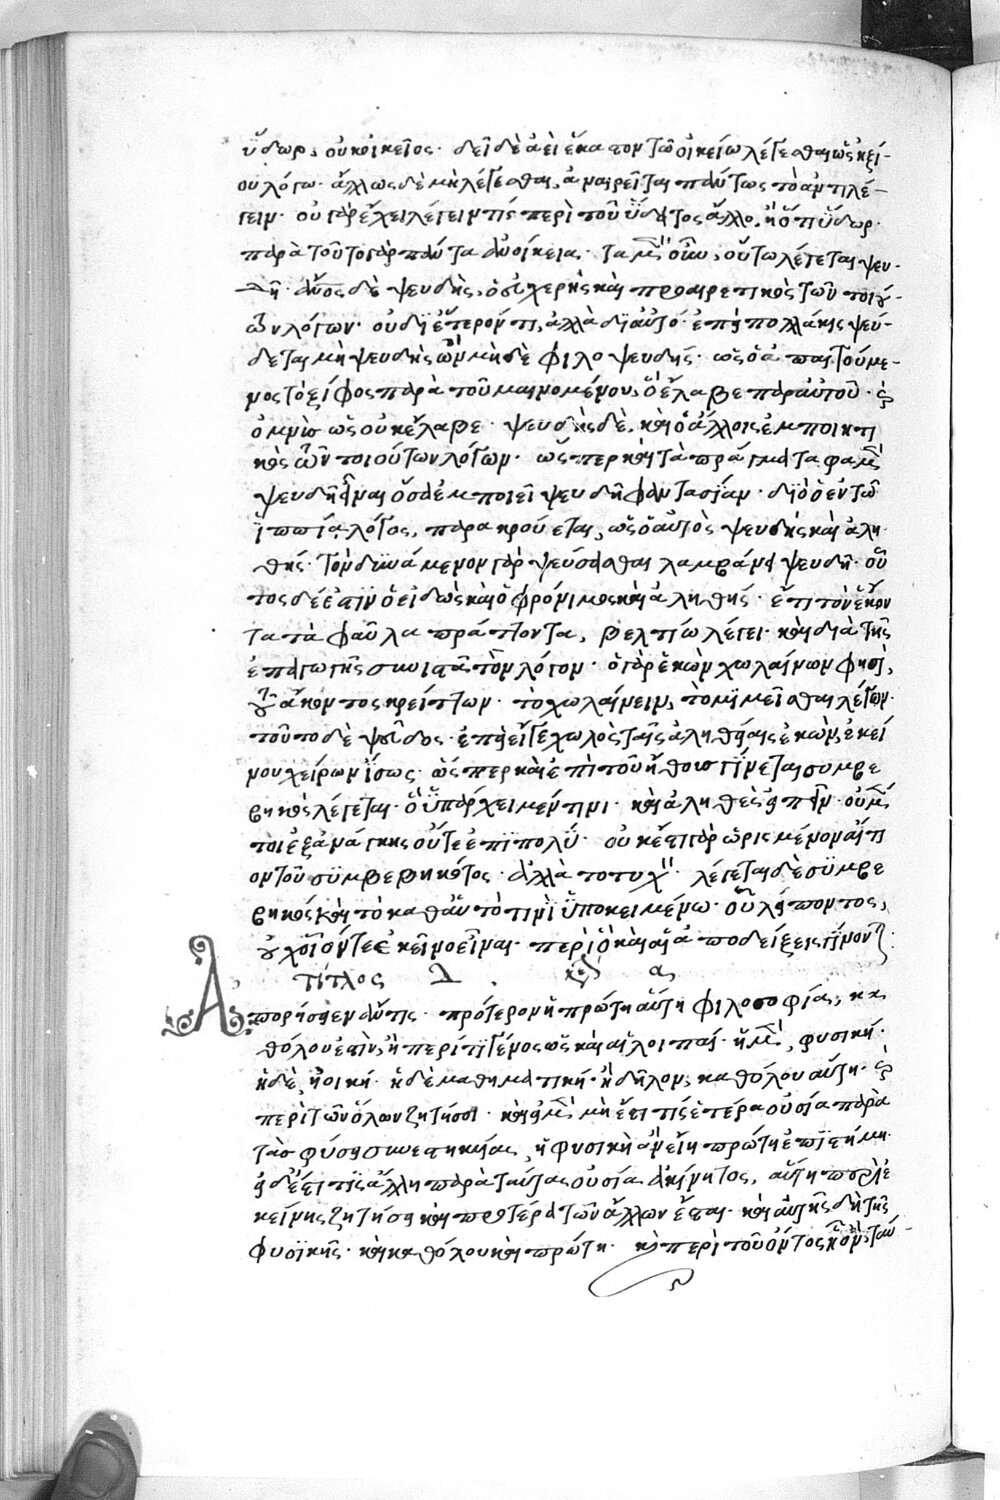 ὕδωρ, οὐκ οἰκεῖος· δεῖ δὲ ἀεὶ ἕκαστον τῶ οἰκείω λέγεσθαι ὡς ἠξί-
ου λόγω· ἄλλως δὲ μὴ λέγεσθαι, ἀναιρεῖται πάντως τὸ ἀντιλέ-
γειν· οὐ γὰρ ἔχει λέγειν τίς περὶ τοῦ ὕδατος ἄλλο, ἢ ὅτι ὕδωρ·
παρὰ τοῦτο γὰρ πάντα ἀνοίκεια· τὰ μὲν οὖν, οὕτω λέγεται ψευ-
δῆ· ἄνος δὲ ψευδὴς, ὁ εὐχερὴς καὶ προαιρετικὸς τῶν τοιού-
των λόγων· οὐ δι' ἕτερόν τι, ἀλλὰ δι' αὐτό· ἐπεὶ πολλάκις ψεύ-
δεται μὴ ψευδὴς ὢν μηδὲ φιλοψευδής· ὡς ὁ ἀπαιτούμε-
νος τὸ ξίφος παρὰ τοῦ μαινομένου, ὃ ἔλαβε παρ' αὐτοῦ· καὶ
ὀμνὺς ὡς οὐκ ἔλαβε· ψευδὴς δὲ, καὶ ὁ ἄλλοις ἐμποιητι
κὸς τῶν τοιούτων λόγων· ὥσπερ καὶ τὰ πράγματα φαμὲν
ψευδῆ εἶναι ὅσα ἐμποιεῖ ψευδῆ φαντασίαν· διὸ ὁ ἐν τῶ
ἱππία λόγος, παρακρούεται, ὡς ὁ αὐτὸς ψευδὴς καὶ ἀλη
θής· τὸν δυνάμενον γὰρ ψεύσασθαι λαμβάνει ψευδῆ· οὗ
τος δέ ἐστιν ὁ εἰδὼς καὶ ὁ φρόνιμος καὶ ἀληθής· ἔτι τὸν ἑκόν
τα τὰ φαῦλα πράττοντα, βελτίω λέγει· καὶ διὰ τῆς
ἐπαγωγῆς συνιστᾶ τὸν λόγον· ὁ γὰρ ἑκὼν χωλαίνων φησὶ,
τοῦ ἄκοντος κρείττων· τὸ χωλαίνειν, τὸ μιμεῖσθαι λέγων·
τοῦτο δὲ ψεῦδος· ἐπεὶ εἴγε χωλὸς ταῖς ἀληθείαις ἑκὼν, ἐκεί
νου χείρων ἴσως· ὥσπερ καὶ ἐπὶ τοῦ ἤθους γίνεται συμβε
βηκὸς λέγεται· ὃ ὑπάρχει μέν τινι· καὶ ἀληθὲς εἰπεῖν· οὐ μέν
τοι ἐξ ἀνάγκης οὔτε ἐπιπολύ· οὐκ ἔστι γὰρ ὡρισμένον αἴτι
ον τοῦ συμβεβηκότος· ἀλλὰ τὸ τυχόν· λέγεται δὲ συμβε
βηκὸς καὶ τὸ καθ' αὑτὸ τινὶ ὑποκειμένω· οὗ λείποντος,
οὐχ οἷόν τε ἐκεῖνο εἶναι· περὶ ὃ καὶ αἱ ἀποδείξεις γίνονται:
τίτλος Δ κεφ α
Ἀπορήσειεν ἄν τις· πρότερον ἡ πρώτη αὕτη φιλοσοφία, κα
θόλου ἐστὶν, ἢ περί τι γένος ὡς καὶ αἱ λοιπαί· ἡ μὲν, φυσική·
ἡ δὲ, ἠθική· ἡ δὲ μαθηματική· ἢ δῆλον, καθόλου αὕτη· καὶ
περὶ τῶν ὅλων ζητήσει· καὶ εἰ μὲν μὴ ἔστι τίς ἑτέρα οὐσία παρὰ
τὰς φύσει συνεστηκυίας, ἡ φυσικὴ ἂν εἴη πρώτη ἐπιστήμη·
εἰ δέ ἐστί τις ἄλλη παρὰ ταύτας οὐσία ἀκίνητος, αὕτη περὶ ἐ
κείνης ζητήσει καὶ προτέρα τῶν ἄλλων ἔσται· καὶ αὐτῆς δὴ τῆς
φυσικῆς· καὶ καθόλου καὶ πρώτη· καὶ περὶ τοῦ ὄντος ᾗ ὂν, ταύ-